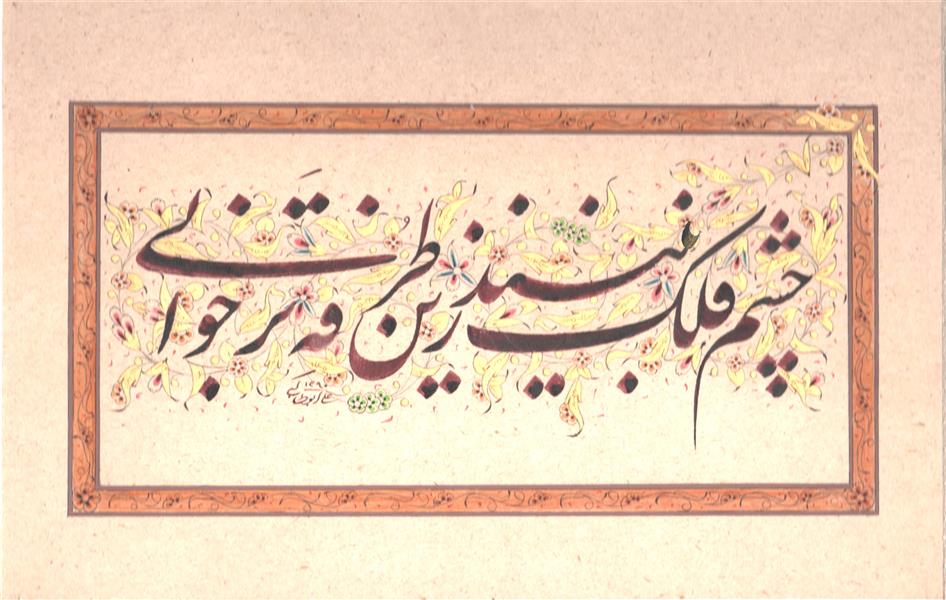 چشم فلک نبیند زین طرفه تر جوانی